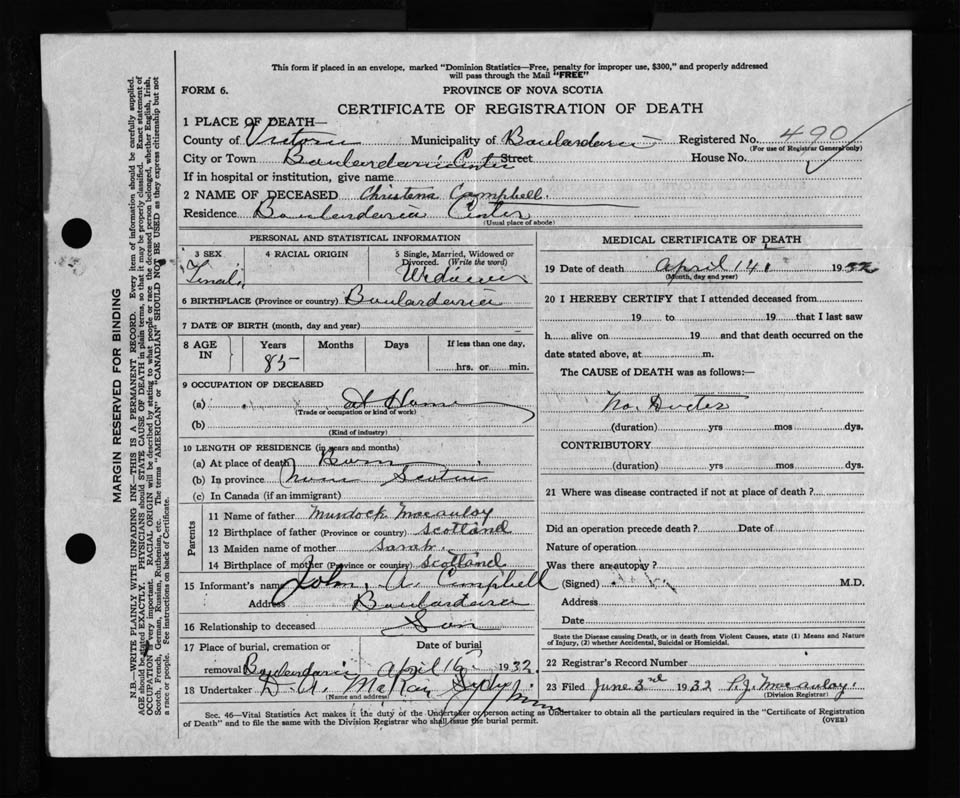 This form if placed in an envelope, marked "Dominion Statistics—Free, penalty for improper use, $300," and properly addressed
will pass through the Mail "FREE"
FORM 6. PROVINCE OF NOVA SCOTIA
CERTIFICATE OF REGISTRATION OF DEATH
1 PLACE OF DEATH—
County of Victoria Municipality of Boulardarie Registered No. 490
(For use of Registrar General only)
City or Town Boulardarie Center Street House No.
If in hospital or institution, give name
2 NAME OF DECEASED Christena Campbell
Residence Boulardarie Center
(Usual place of abode)
PERSONAL AND STATISTICAL INFORMATION
3 SEX 4 RACIAL ORIGIN 5 Single, Married, Widowed or
Divorced. (Write the word)
Female Widower
6 BIRTHPLACE (Province or country) Boulardarie
7 DATE OF BIRTH (month, day and year)
8 AGE IN Years Months Days If less than one day,
85 hrs. or min.
9 OCCUPATION OF DECEASED
(a) at Home
(Trade or occupation or kind of work)
(b)
(Kind of industry)
10 LENGTH OF RESIDENCE (in years and months)
(a) At place of death Born
(b) In province Nova Scotia
(c) In Canada (if an immigrant)
Parents
11 Name of father Murdock Macaulay
12 Birthplace of father (Province or country) Scotland
13 Maiden name of mother Sarah
14 Birthplace of mother (Province or country) Scotland
15 Informant's name John A. Campbell
Address Boulardarie
16 Relationship to deceased Son
17 Place of burial, cremation or Date of burial
removal Boulardarie April 16 1932.
18 Undertaker D. A. McKay Sydney Mines
(Name and address)
MEDICAL CERTIFICATE OF DEATH
19 Date of death April 14 1932
(Month, day and year)
20 I HEREBY CERTIFY that I attended deceased from
19 to 19 that I last saw
h alive on 19 and that death occurred on the
date stated above, at m.
The CAUSE of DEATH was as follows:—
No. Docter
(duration) yrs mos dys.
CONTRIBUTORY
(duration) yrs mos dys.
21 Where was disease contracted if not at place of death ?
Did an operation precede death ? Date of
Nature of operation
Was there an autopsy ?
(Signed) M.D.
Address
Date
State the Disease causing Death, or in death from Violent Causes, state (1) Means and Nature
of Injury, (2) whether Accidental, Suicidal or Homicidal.
22 Registrar's Record Number
23 Filed June 3rd 1932 P.J. Macaulay.
(Division Registrar)
Sec. 46—Vital Statistics Act makes it the duty of the Undertaker or person acting as Undertaker to obtain all the particulars required in the "Certificate of Registration
of Death" and to file the same with the Division Registrar who shall issue the burial permit.
(OVER)
MARGIN RESERVED FOR BINDING
N.B.—WRITE PLAINLY WITH UNFADING INK—THIS IS A PERMANENT RECORD. Every item of information should be carefully supplied.
AGE should be stated EXACTLY. PHYSICIANS should STATE CAUSE OF DEATH in plain terms, so that it may be properly classified. Exact statement of
OCCUPATION is very important. RACIAL ORIGIN will be described by stating to what people or race the deceased person belonged, whether English, Irish,
Scotch, French, German, Russian, Ruthenian, etc. The terms "AMERICAN" or "CANADIAN" SHOULD NOT BE USED as they express citizenship but not
a race or people. See instructions on back of Certificate.